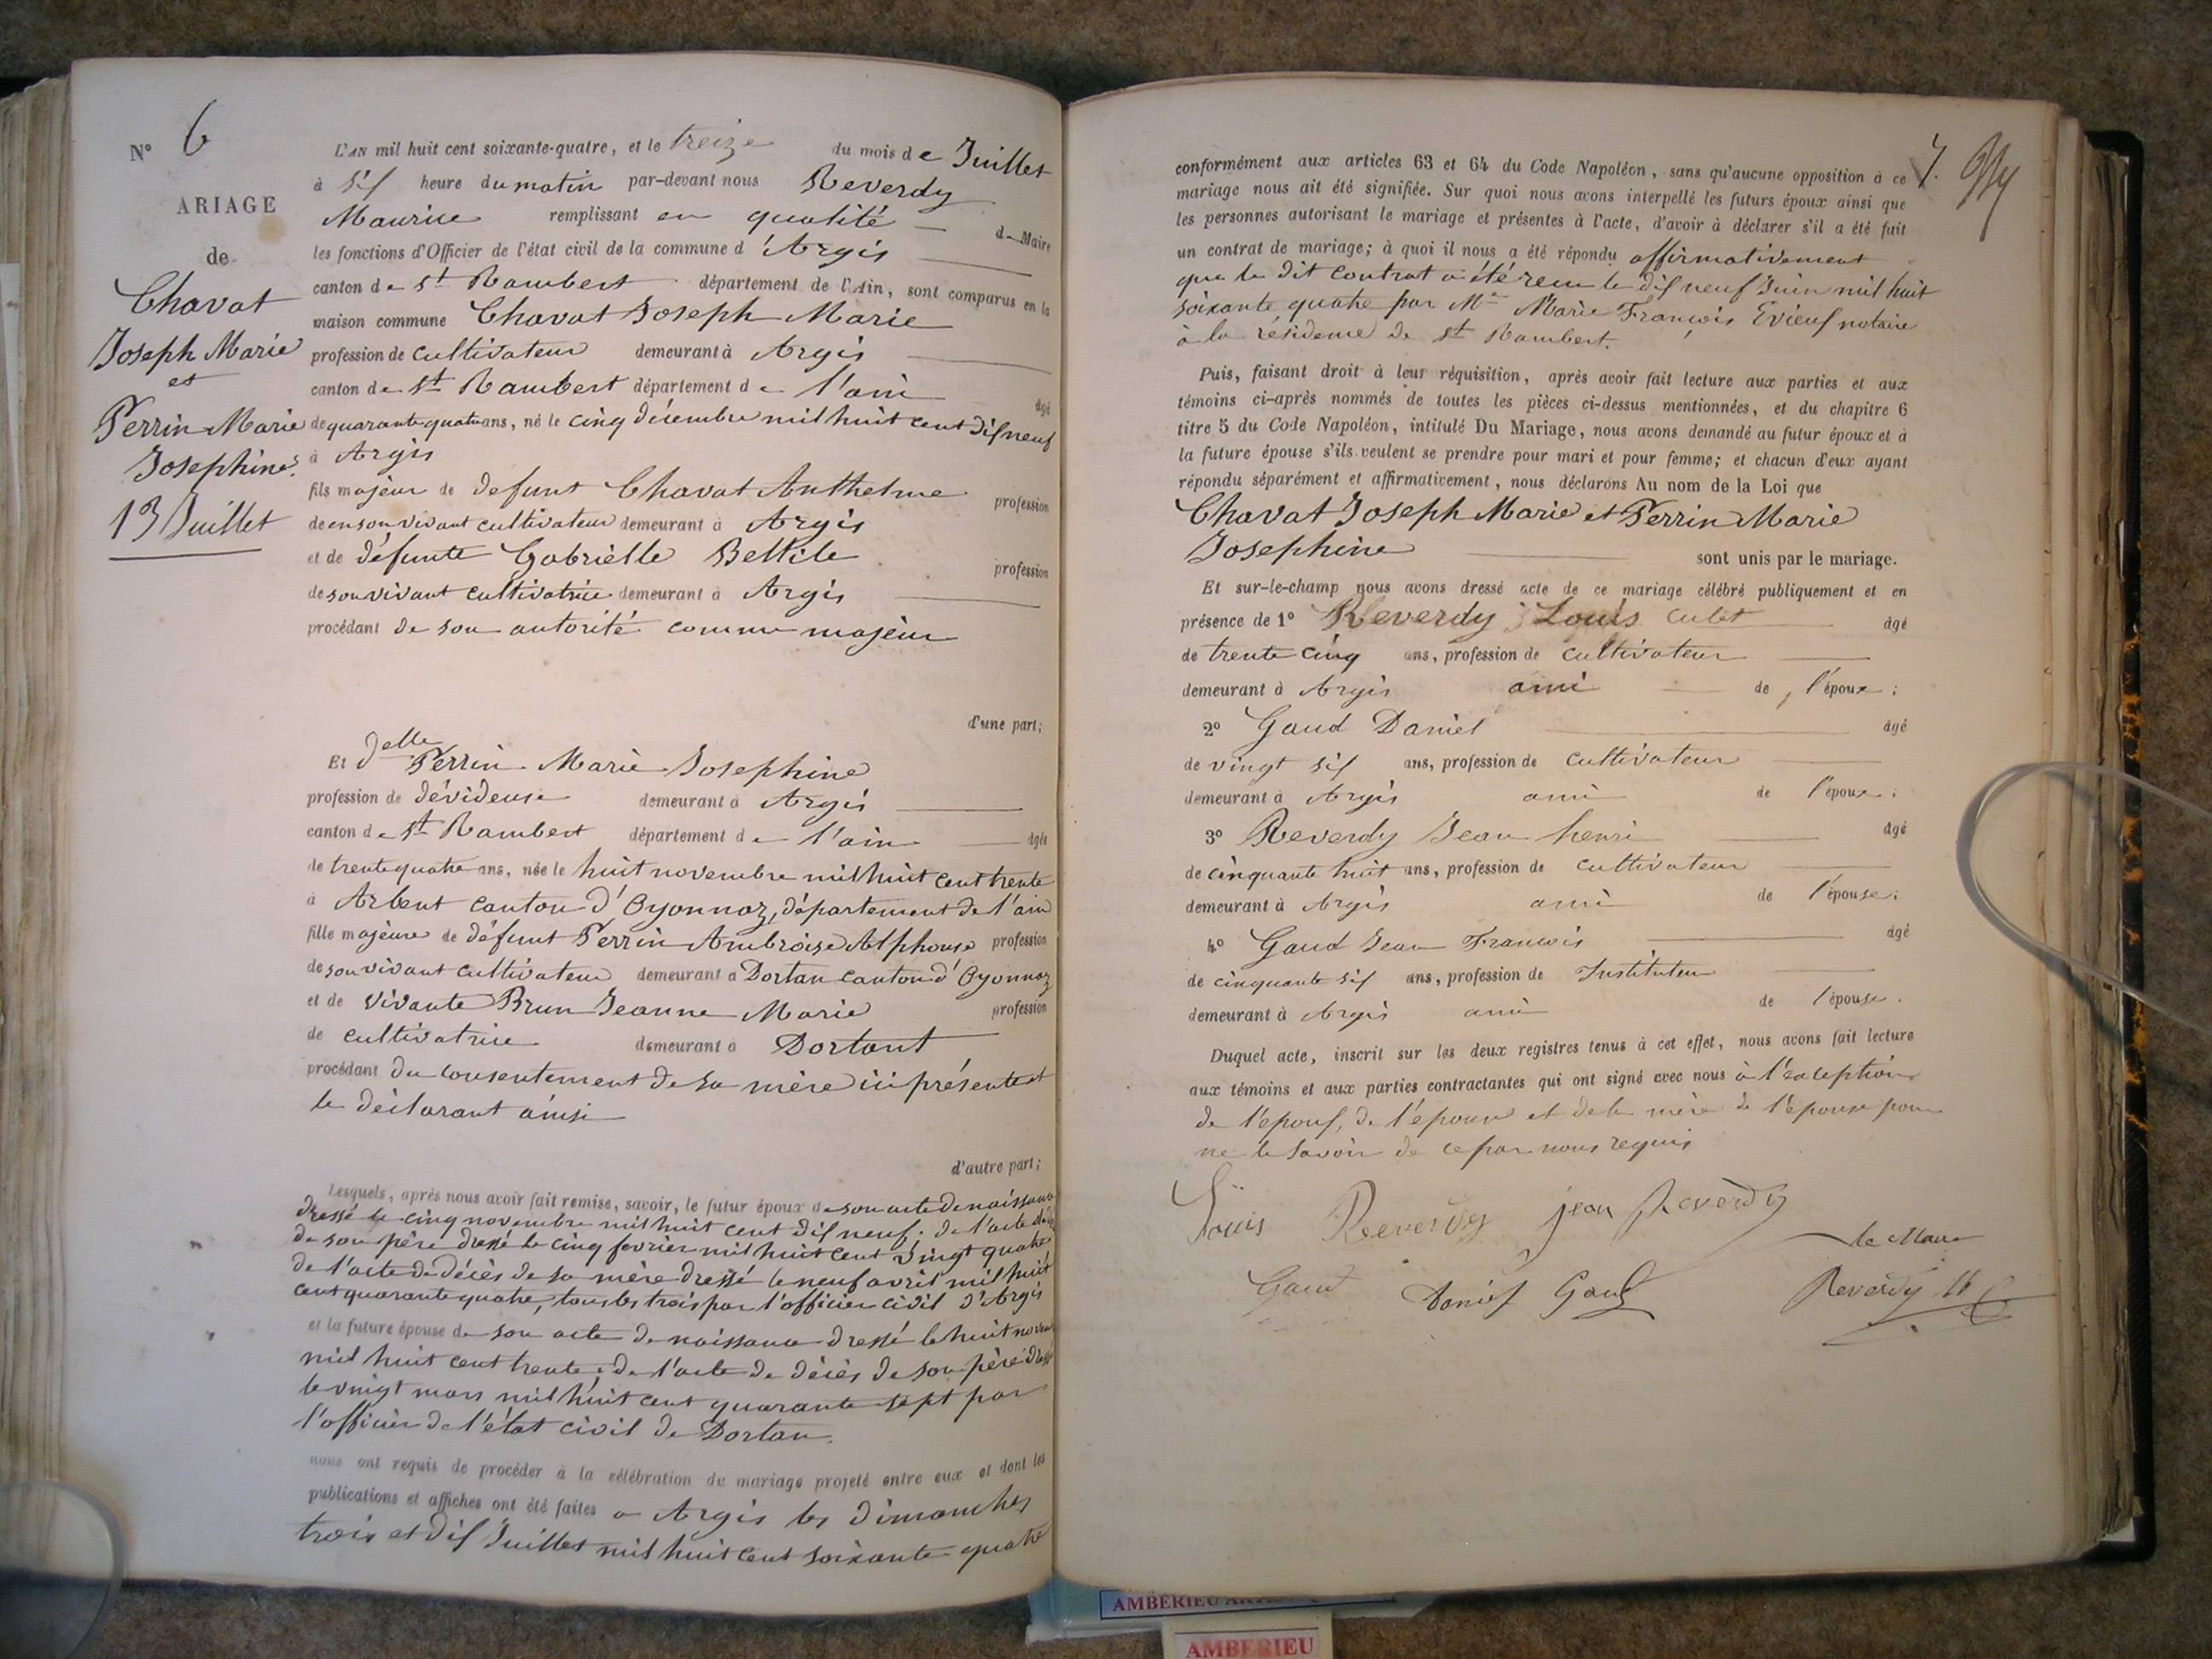 N° 6
ARIAGE
de
Chavat
Joseph Marie
et
Perrin Marie
Josephine
13 Juillet
L'AN mil huit cent soixante-quatre, et le treize du mois de Juillet
à six heure du matin par-devant nous Reverdy
Maurice remplissant en qualité de Maire
les fonctions d'Officier de l'état civil de la commune d'Argis
canton de St Rambert département de l'Ain, sont comparus en la
maison commune Chavat Joseph Marie
profession de cultivateur demeurant à Argis
canton de St Rambert département de l'ain âgé
de quarante quatre ans, né le cinq décembre mil huit cent dix neuf
à Argis
fils majeur de defunt Chavat Anthelme profession
de en son vivant cultivateur demeurant à Argis
et de défunte Gabrielle Bellile profession
de son vivant cultivatrice demeurant à Argis
procédant de son autorité comme majeur
d'une part;
Et delle Perrin Marie Josephine
profession de dévideuse demeurant à Argis
canton de St Rambert département de l'ain âgée
de trente quatre ans, née le huit novembre mil huit cent trente
à Arbent canton d'Oyonnaz, département de l'ain
fille majeure de défunt Perrin Ambroise Alphonse profession
de son vivant cultivateur demeurant à Dortan canton d'Oyonnaz
et de vivante Brun Jeanne Marie profession
de cultivatrice demeurant à Dortant
procédant du consentement de sa mère ici présente et
le déclarant ainsi
d'autre part;
Lesquels, après nous avoir fait remise, savoir, le futur époux de son acte de naissance
dressé le cinq novembre mil huit cent dix neuf; de l'acte de
de son père dressé le cinq fevrier mil huit cent vingt quatre
de l'acte de décès de sa mère dressé le neuf avril mil huit
cent quarante quatre, tous les trois par l'officier civil d'Argis
et la future épouse de son acte de naissance dressé le huit novem
mil huit cent trente; de l'acte de décès de son père dressé
le vingt mars mil huit cent quarante sept par
l'officier de l'état civil de Dortan.
nous ont requis de procéder à la célébration du mariage projeté entre eux et dont les
publications et affiches ont été faites a Argis les dimanches
trois et dix Juillet mil huit cent soixante quatre
conformément aux articles 63 et 64 du Code Napoléon, sans qu'aucune opposition à ce
mariage nous ait été signifiée. Sur quoi nous avons interpellé les futurs époux ainsi que
les personnes autorisant le mariage et présentes à l'acte, d'avoir à déclarer s'il a été fait
un contrat de mariage; à quoi il nous a été répondu affirmativement
que le dit contrat a été recu le dix neuf Juin mil huit
soixante quatre par Me Marie François Evieux notaire
à la résidence de St Rambert.
Puis, faisant droit à leur réquisition, après avoir fait lecture aux parties et aux
témoins ci-après nommés de toutes les pièces ci-dessus mentionnées, et du chapitre 6
titre 5 du Code Napoléon, intitulé Du Mariage, nous avons demandé au futur époux et à
la future épouse s'ils veulent se prendre pour mari et pour femme; et chacun d'eux ayant
répondu séparément et affirmativement, nous déclarons Au nom de la Loi que
Chavat Joseph Marie et Perrin Marie
Josephine sont unis par le mariage.
Et sur-le-champ nous avons dressé acte de ce mariage célébré publiquement et en
présence de 1° Reverdy Louis âgé
de trente cinq ans, profession de cultivateur
demeurant à Argis ami de l'époux;
2° Gaud Daniel âgé
de vingt six ans, profession de cultivateur
demeurant à Argis ami de l'époux;
3° Reverdy Jean henri âgé
de cinquante huit ans, profession de cultivateur
demeurant à Argis ami de l'épouse;
4° Gaud Jean Francois âgé
de cinquante six ans, profession de Instituteur
demeurant à Argis ami de l'épouse.
Duquel acte, inscrit sur les deux registres tenus à cet effet, nous avons fait lecture
aux témoins et aux parties contractantes qui ont signé avec nous à l'exception
de l'époux, de l'épouse et de la mère de l'épouse pour
ne le savoir de ce par nous requis
Louis Reverdy jean Reverdy
le Maire
Gaud Daniel Gaud Reverdy
AMBERIEU
AMBERIEU